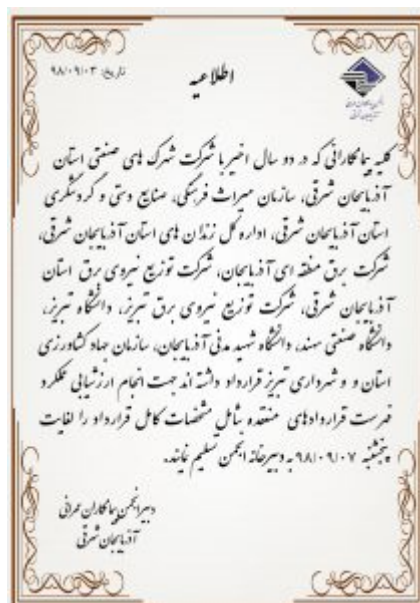 تاریخ: ۹۸/۰۹/۰۳
اطلاعیه
انجمن پیمانکاران عمرانی
آذربایجان شرقی
کلیه پیمانکارانی که در دو سال اخیر با شرکت شهرک های صنعتی استان
آذربایجان شرقی، سازمان میراث فرهنگی، صنایع دستی و گردشگری
استان آذربایجان شرقی، اداره کل زندان های استان آذربایجان شرقی،
شرکت برق منطقه ای آذربایجان، شرکت توزیع نیروی برق استان
آذربایجان شرقی، شرکت توزیع نیروی برق تبریز، دانشگاه تبریز،
دانشگاه صنعتی سهند، دانشگاه شهید مدنی آذربایجان، سازمان جهاد کشاورزی
استان و و شهرداری تبریز قرارداد داشته اند جهت انجام ارزشیابی عملکرد
فهرست قراردادهای منعقده شامل مشخصات کامل قرارداد را لغایت
پنجشنبه ۹۸/۰۹/۰۷ به دبیرخانه انجمن تسلیم نمایند.
دبیر انجمن پیمانکاران عمرانی
آذربایجان شرقی